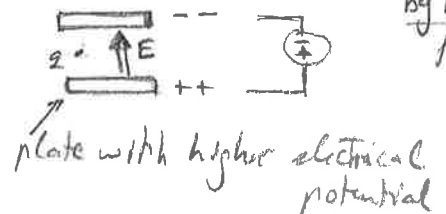 By
- -
2 E
+ +
plate with higher electrical
potential